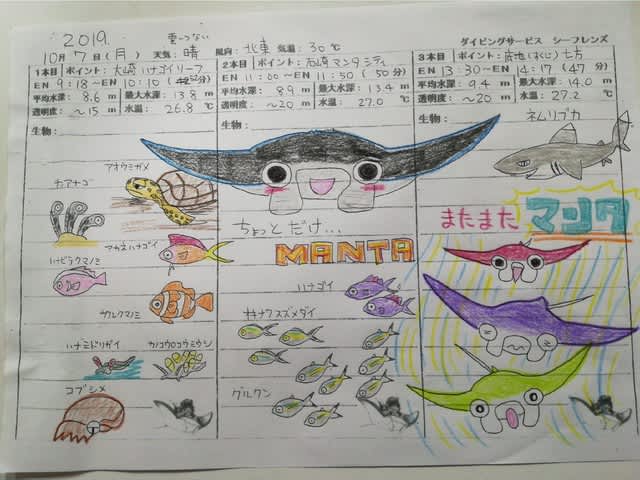 2019. 雲一つない
10月 7日(月) 天気: 晴 風向: 北東 気温: 30℃ ダイビングサービス シーフレンズ
1本目 ポイント: 大崎 ハナゴイリーフ
EN 9:18 ~EN 10:10 (52分)
平均水深: 8.6 m 最大水深: 13.8 m
透明度: ~15 m 水温: 26.8 ℃
生物:
アオウミガメ
チンアナゴ
アカネハナゴイ
ハナビラクマノミ
カクレクマノミ
ハナミドリガイ
コブシメ
2本目 ポイント: 石崎 マンタ シティ
EN 11:00 ~EN 11:50 (50分)
平均水深: 8.9 m 最大水深: 13.4 m
透明度: ~20 m 水温: 27.0 ℃
生物:
ちょっとだけ...
MANTA
ハナゴイ
キホナワスズメダイ
グルクン
3本目 ポイント: 底地(すくじ)七方
EN 13:30 ~EN 14:17 (47分)
平均水深: 9.4 m 最大水深: 14.0 m
透明度: ~20 m 水温: 27.2 ℃
生物:
ネムリブカ
またまた マンタ